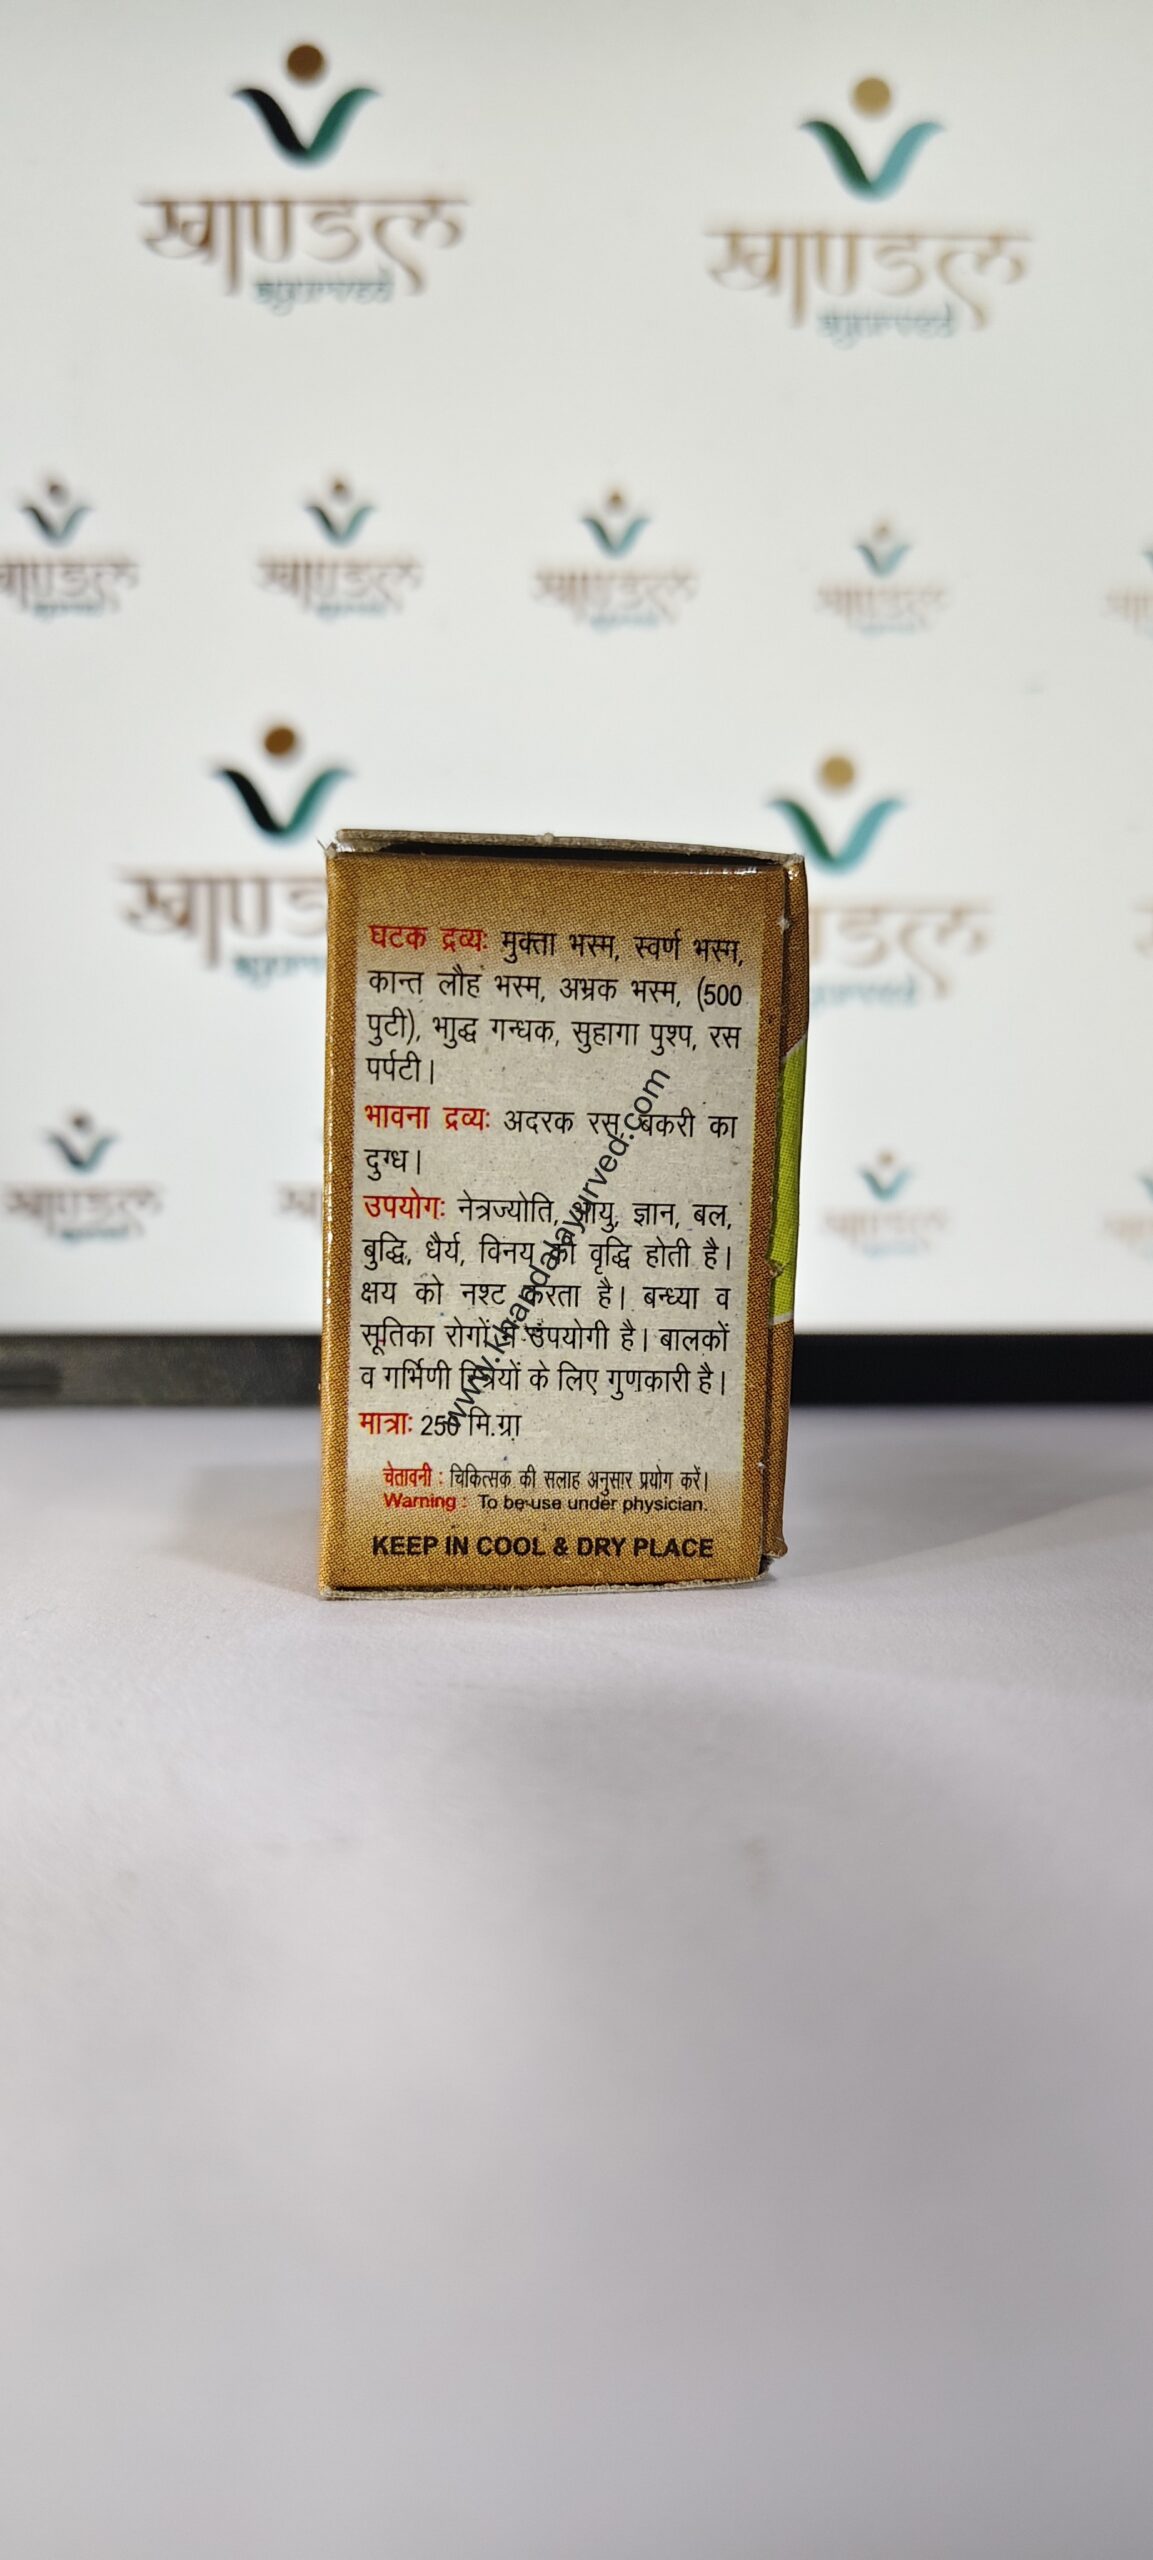 खाण्डल
ayurved
खाण्डल
ayurved
खाण्डल
ayurved
खाण्डल
ayurved
खाण्डल
ayurved
खाण्डल
घटक द्रव्यः मुक्ता भस्म, स्वर्ण भस्म,
कान्त लौह भस्म, अभ्रक भस्म, (500
पुटी), भाुद्ध गन्धक, सुहागा पुश्प, रस
पर्पटी।
भावना द्रव्यः अदरक रस, बकरी का
दुग्ध।
उपयोगः नेत्रज्योति, आयु, ज्ञान, बल,
बुद्धि, धैर्य, विनय की वृद्धि होती है।
क्षय को नश्ट करता है। बन्ध्या व
सूतिका रोगों में उपयोगी है। बालकों
व गर्भिणी स्त्रियों के लिए गुणकारी है।
मात्राः 250 मि.ग्रा
चेतावनी : चिकित्सक की सलाह अनुसार प्रयोग करें।
Warning : To be use under physician.
KEEP IN COOL & DRY PLACE
www.khandalayurved.com